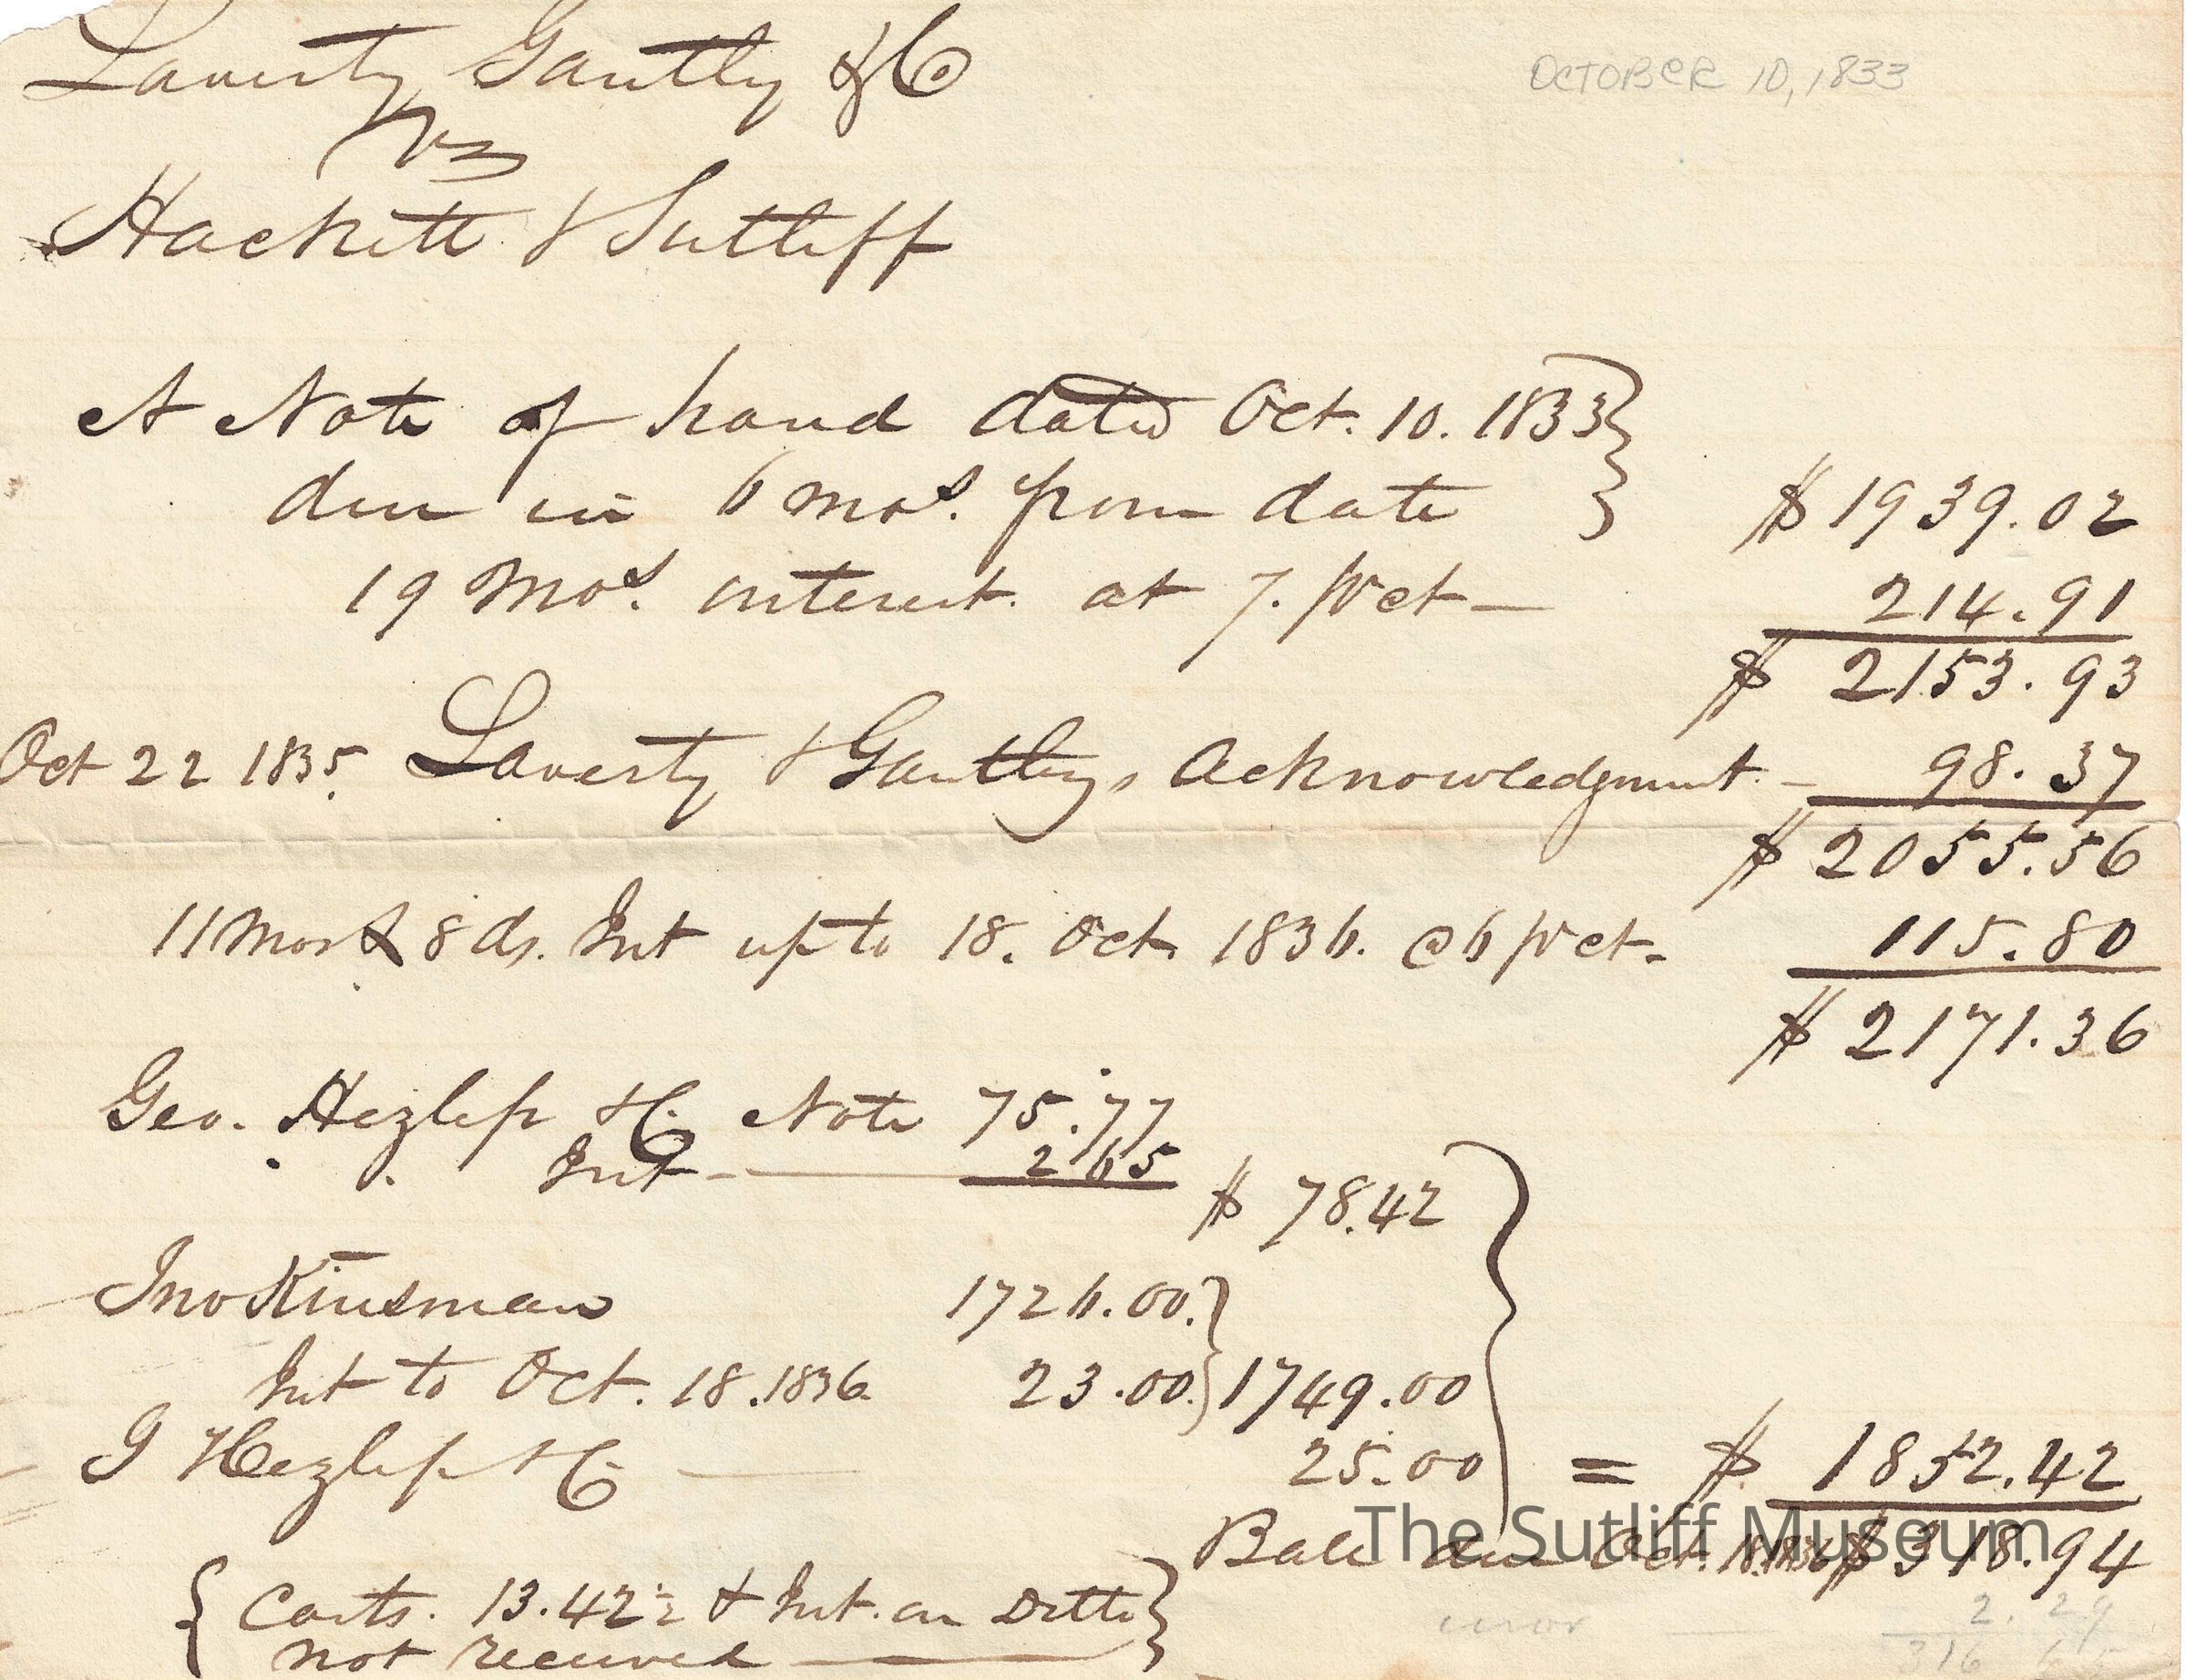 Laverty Gantly & Co
vs
Hackett & Sutliff
OCTOBER 10, 1833
A Note of hand dated Oct. 10. 1833
due in 6 mos. from date $1939.02
19 Mos. interest. at 7. pr ct— 214.91
$ 2153.93
Oct 22 1835. Laverty & Gantlys Acknowledgment.— 98.37
$ 2055.56
11 Mos & 8 ds. Int up to 18. Oct. 1836. @ 6 pr ct- 115.80
$ 2171.36
Geo. Hezlep & Co. Note 75.77
Int- 2.65 $ 78.42
Jno Kinsman 1726.00.
Int to Oct. 18. 1836. 23.00. 1749.00
G Hezlep & Co — 25.00 = $ 1852.42
The Sutliff Museum
Bale due Oct. 18. 1836 $ 318.94
Costs. 13.42½ & Int. on Ditto
not received —
error 2.29
316 65